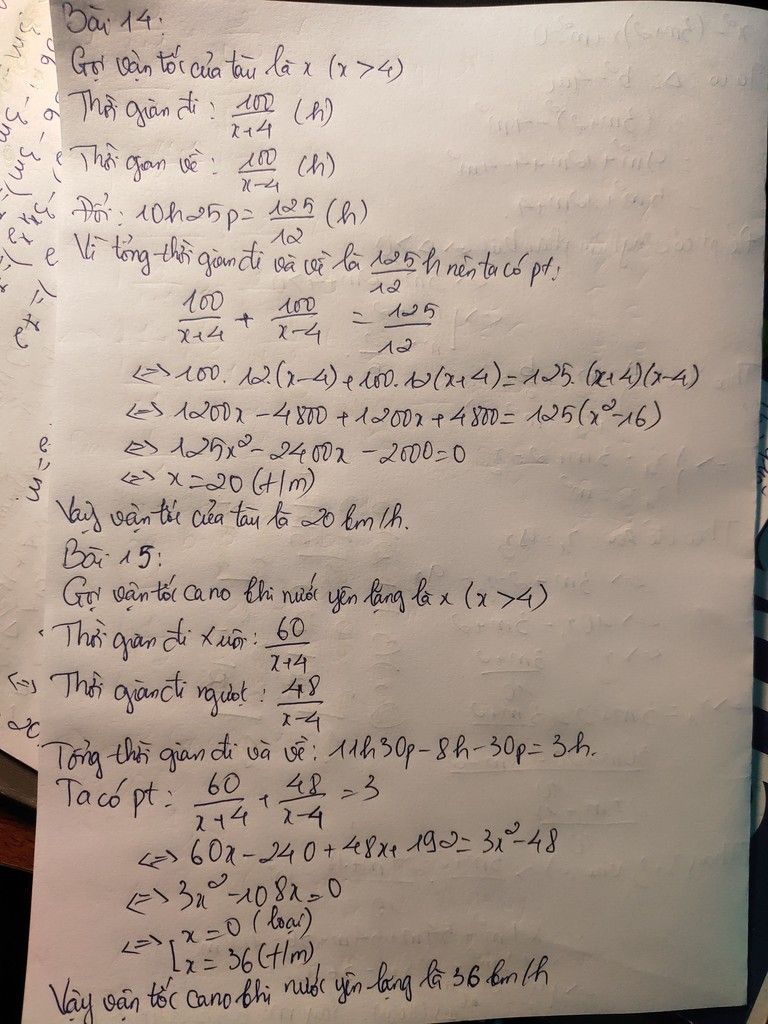 Bài 14:
Gọi vận tốc của tàu là x (x > 4)
Thời gian đi: 100/(x+4) (h)
Thời gian về: 100/(x-4) (h)
Đổi: 10h25p = 125/12 (h)
Vì tổng thời gian đi và về là 125/12 h nên ta có pt:
100/(x+4) + 100/(x-4) = 125/12
<=> 100. 12.(x-4) + 100. 12(x+4) = 125. (x+4)(x-4)
<=> 1200x - 4800 + 1200x + 4800 = 125(x²-16)
<=> 125x² - 2400x - 2000 = 0
<=> x = 20 (t/m)
Vậy vận tốc của tàu là 20 km/h.
Bài 15:
Gọi vận tốc cano khi nước yên lặng là x (x > 4)
Thời gian đi xuôi: 60/(x+4)
Thời gian đi ngược: 48/(x-4)
Tổng thời gian đi và về: 11h30p - 8h - 30p = 3h.
Ta có pt: 60/(x+4) + 48/(x-4) = 3
<=> 60x - 240 + 48x + 192 = 3x² - 48
<=> 3x² - 108x = 0
<=> [x = 0 (loại)
x = 36 (t/m)
Vậy vận tốc cano khi nước yên lặng là 36 km/h